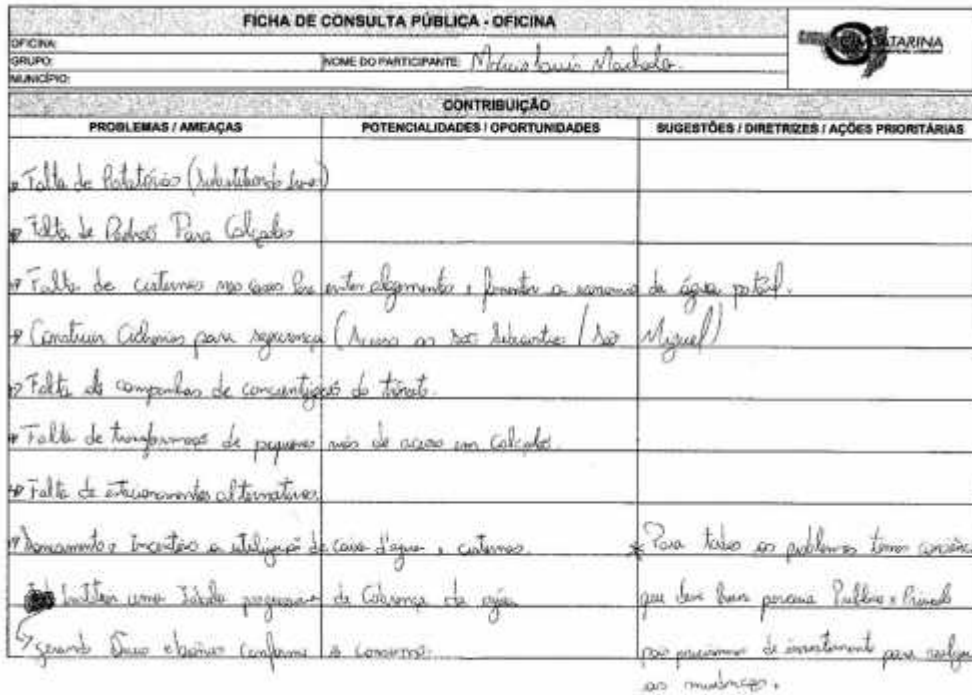 FICHA DE CONSULTA PÚBLICA - OFICINA
OFICINA:
GRUPO: NOME DO PARTICIPANTE: Márcio Luis Machado.
MUNICÍPIO:
CONTRIBUIÇÃO
PROBLEMAS / AMEAÇAS POTENCIALIDADES / OPORTUNIDADES SUGESTÕES / DIRETRIZES / AÇÕES PRIORITÁRIAS
Falta de Rotatórias (substituindo
Falta de Padrão Para Calçadas
Falta de cisternas nas casas evitar alagamentos e fomentar a economia da água potável.
Construir Ciclovias para segurança (Acesso ao São Sebastião / São Miguel)
Falta de campanhas de conscientização do trânsito.
Falta de transformação de pequenas vias de acesso em calçadão.
Falta de estacionamentos alternativos
Incentivo a utilização de caixa d'água e cisternas. * Para todos os problemas temos consciência
Instituir uma Tabela progressiva de Cobrança da água que deve haver parceria Público e Privada
gerando conforme o consumo. pois precisamos de investimento para realizar
as mudanças.